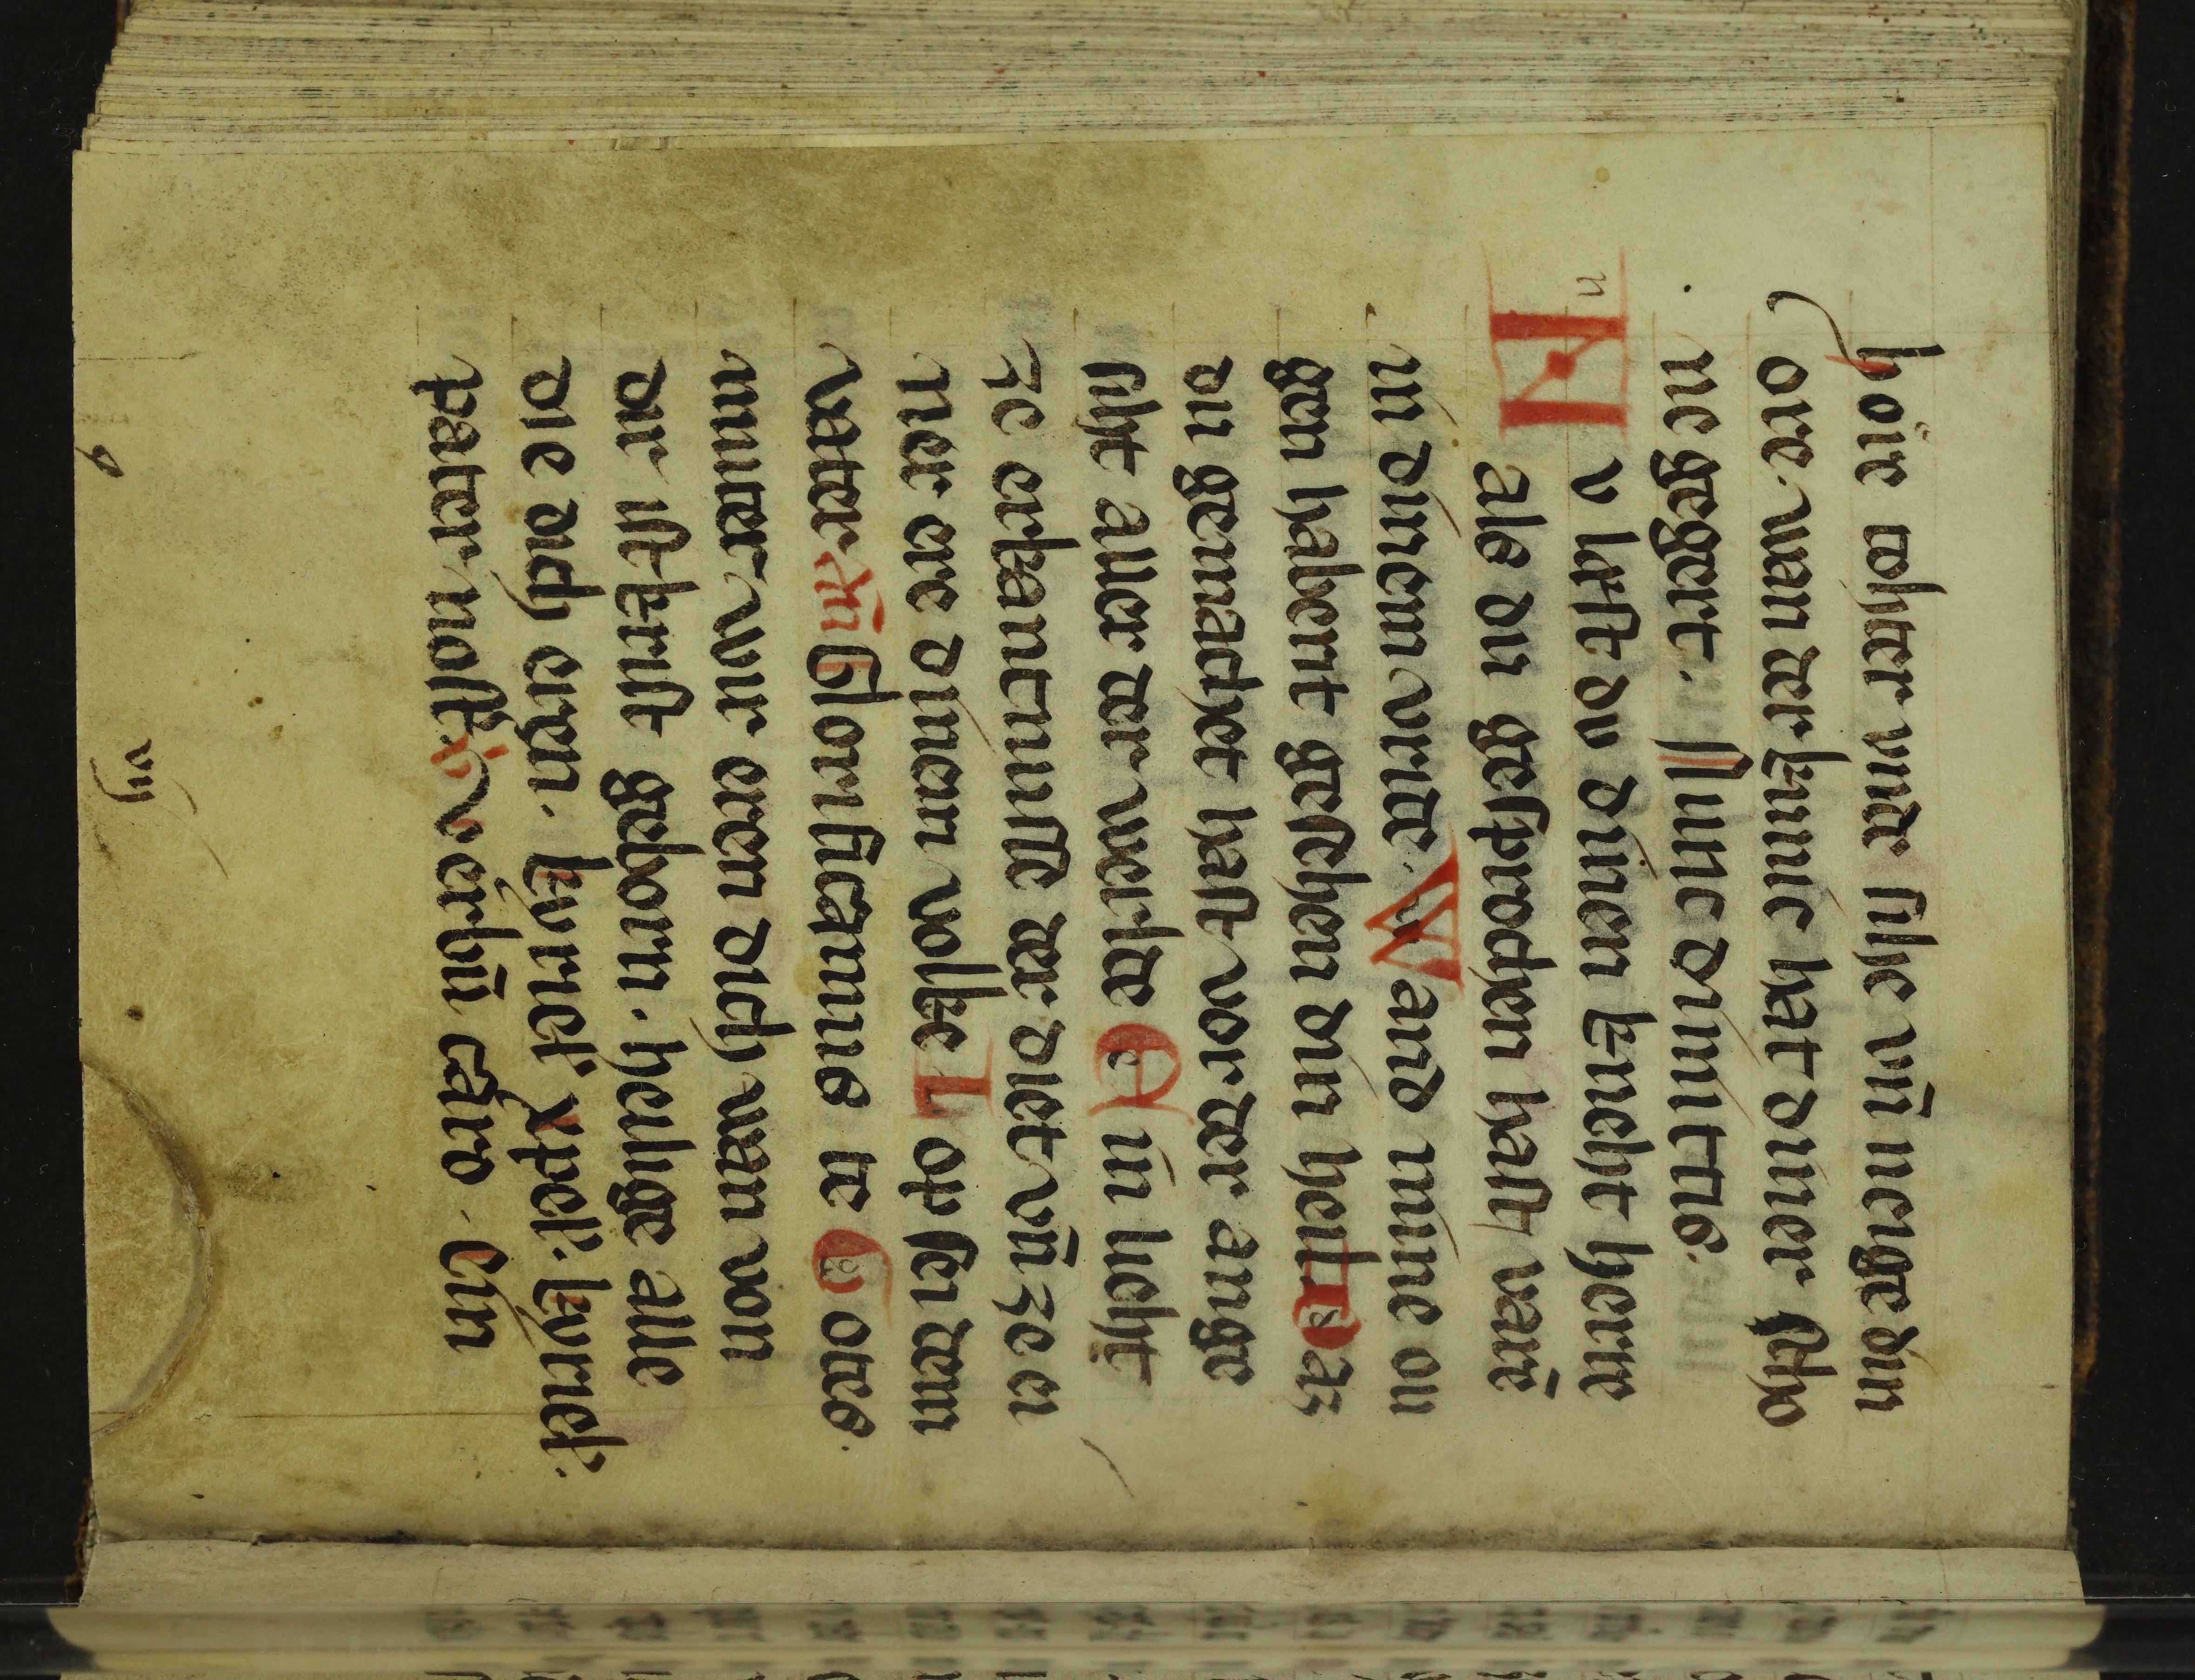 hore tohter mir sihe vn̄ neige din
ore. wan der kunic hat diner scho
ne gegert. Nunc dimittis.
Nv lest du dinen kneht herre
als du gesprochen hast
in dinem vride. Wand mine ou
gen habent gesehen din heil. Daz
du gemachet hast vor der ange
siht aller der werlte Ein lieht
ze erkantnusse der diet vn̄ ze ei
ner ere dinem volke Lop sei dem
vater. Glorificamus te Gotes
muter wir eren dich wan von
dir ist krist geborn. heilige alle
die dich eren. kyriel. xpel. kyriel.
pater noster. Verbū caro. Ein